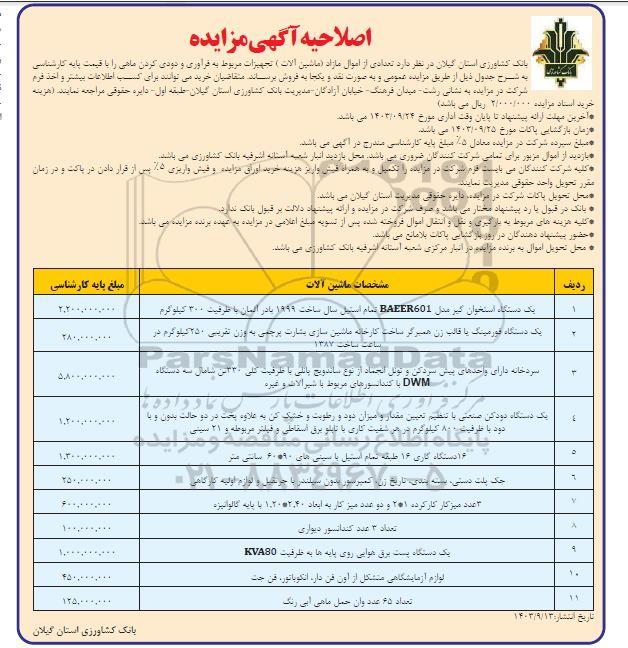 اصلاحیه آگهی مزایده
بانک کشاورزی
بانک کشاورزی استان گیلان در نظر دارد تعدادی از اموال مازاد (ماشین آلات ) تجهیزات مربوط به فرآوری و دودی کردن ماهی را با قیمت پایه کارشناسی
به شرح جدول ذیل از طریق مزایده عمومی و به صورت نقد و یکجا به فروش برساند. متقاضیان خرید می توانند برای کسب اطلاعات بیشتر و اخذ فرم
شرکت در مزایده به نشانی رشت- میدان فرهنگ- خیابان آزادگان-مدیریت بانک کشاورزی استان گیلان-طبقه اول- دایره حقوقی مراجعه نمایند. (هزینه
خرید اسناد مزایده ۲/۰۰۰/۰۰۰ ریال می باشد)
*آخرین مهلت ارائه پیشنهاد تا پایان وقت اداری مورخ ۱۴۰۳/۰۹/۲۴ می باشد.
*زمان بازگشایی پاکات مورخ ۱۴۰۳/۰۹/۲۵ می باشد.
*مبلغ سپرده شرکت در مزایده معادل ۵٪ مبلغ پایه کارشناسی مندرج در آگهی می باشد.
*بازدید از اموال مزبور برای تمامی شرکت کنندگان ضروری می باشد. محل بازدید انبار شعبه آستانه اشرفیه بانک کشاورزی می باشد.
*کلیه شرکت کنندگان می بایست فرم شرکت در مزایده را تکمیل و به همراه فیش واریز هزینه خرید اوراق مزایده و فیش واریزی ۵٪ پس از قرار دادن در پاکت و در زمان
مقرر تحویل واحد حقوقی مدیریت نمایند.
*محل تحویل پاکات شرکت در مزایده، دایره حقوقی مدیریت استان گیلان می باشد.
* بانک در قبول یا رد پیشنهاد مختار می باشد و صرف شرکت در مزایده و ارائه پیشنهاد دلالت بر قبول بانک ندارد.
*کلیه هزینه های مربوط به بارگیری و نقل و انتقال اموال فروخته شده پس از تسویه مبلغ اعلامی در مزایده به عهده برنده مزایده می باشد.
*حضور پیشنهاد دهندگان در روز بازگشایی پاکات بلامانع می باشد.
* محل تحویل اموال به برنده مزایده در انبار مرکزی شعبه آستانه اشرفیه بانک کشاورزی می باشد.
ردیف مشخصات ماشین آلات مبلغ پایه کارشناسی
۱ یک دستگاه استخوان گیر مدل BAEER601 تمام استیل سال ساخت ۱۹۹۹ بادر آلمان با ظرفیت ۳۰۰ کیلوگرم ۲,۲۰۰,۰۰۰,۰۰۰
۲ یک دستگاه فورمینگ یا قالب زن همبرگر ساخت کارخانه ماشین سازی بشارت پرچمی به وزن تقریبی ۲۵۰کیلوگرم در
ساعت ساخت ۱۳۸۷ ۲۸۰,۰۰۰,۰۰۰
۳ سردخانه دارای واحدهای پیش سردکن و تونل انجماد از نوع ساندویچ پانلی با ظرفیت کلی ۳۳۰تن شامل سه دستگاه
DWM با کندانسورهای مربوط با شیرآلات و غیره ۵,۸۰۰,۰۰۰,۰۰۰
۴ یک دستگاه دودکن صنعتی با تنظیم تعیین مقدار و میزان دود و رطوبت و خشک کن به علاوه پخت در دو حالت بدون و با
دود با ظرفیت ۸۰۰ کیلوگرم در هر شفیت کاری با تابلو برق اسقاطی و فیلتر مربوطه و ۲۱ سینی ۱,۲۰۰,۰۰۰,۰۰۰
۵ ۱۶دستگاه گاری ۱۶ طبقه تمام استیل با سینی های ۹۰*۶۰ سانتی متر ۱,۳۰۰,۰۰۰,۰۰۰
۶ جک پلت دستی، بسته بندی، تاریخ زن، کمپرسور بدون سیلندر با جرثقیل و لوازم اولیه کارگاهی ۲۵۰,۰۰۰,۰۰۰
۷ ۳عدد میزکار کارکرده ۱*۲ و دو عدد میز کار به ابعاد ۲.۴۰*۱.۲۰ با پایه گالوانیزه ۶۰۰,۰۰۰,۰۰۰
۸ تعداد ۳ عدد کندانسور دیواری ۱۰۰,۰۰۰,۰۰۰
۹ یک دستگاه پست برق هوایی روی پایه ها به ظرفیت KVA80 ۱,۰۰۰,۰۰۰,۰۰۰
۱۰ لوازم آزمایشگاهی متشکل از آون فن دار، انکوباتور، فن جت ۴۵۰,۰۰۰,۰۰۰
۱۱ تعداد ۶۵ عدد وان حمل ماهی آبی رنگ ۱۲۵,۰۰۰,۰۰۰
تاریخ انتشار:۱۴۰۳/۹/۱۳
بانک کشاورزی استان گیلان
ParsNamadData
پایگاه اطلاع رسانی مناقصه و مزایده
۰۲۱-۸۸۳۴۹۶۷۰-۵